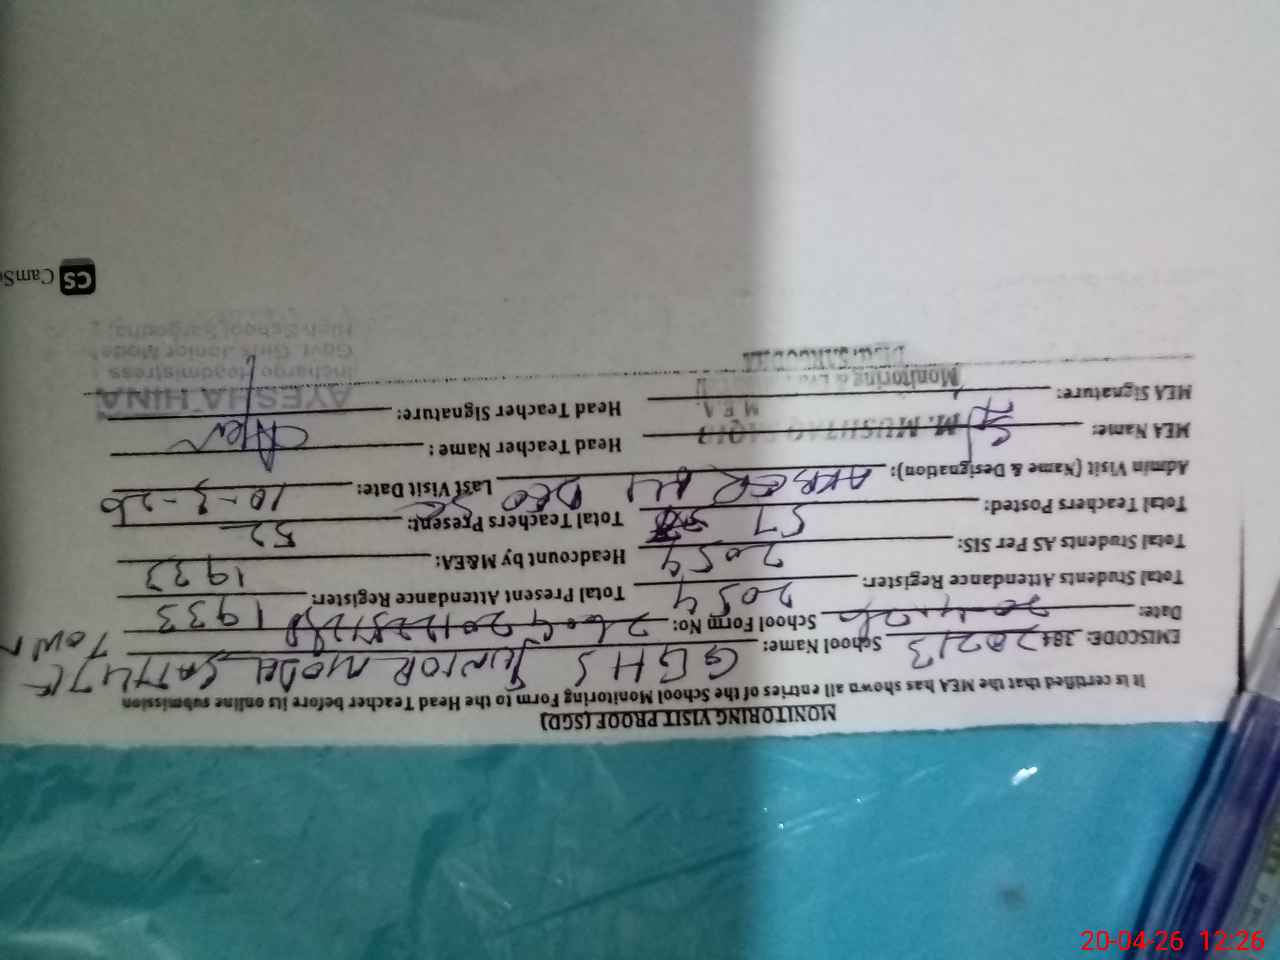 MONITORING VISIT PROOF (SGD)
It is certified that the MEA has shown all entries of the School Monitoring Form to the Head Teacher before its online submission
EMISCODE: 384 20213 School Name: GGHS JUNIOR MODEL SATTLITE TOWN
Date: 20-4-26 School Form No:
Total Students Attendance Register: 2054 Total Present Attendance Register: 1933
Total Students AS Per SIS: 2054 Headcount by M&EA: 1933
Total Teachers Posted: 57 Total Teachers Present: 52
Admin Visit (Name & Designation): AKBER ALI DEO SE Last Visit Date: 10-3-26
MEA Name: M. MUSHTAQ Head Teacher Name:
MEA Signature: M.E.A. Head Teacher Signature:
Monitoring &
Distt. SARGODHA
AYESHA HINA
Incharge Headmistress
Govt. Girls Junior Model
High School Sargodha
CS CamS
20-04-26 12:26